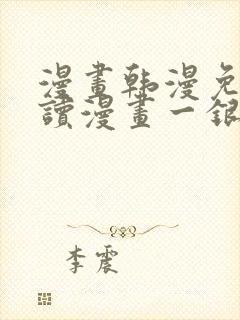 漫畫韩漫免
讀漫畫一銀
李震